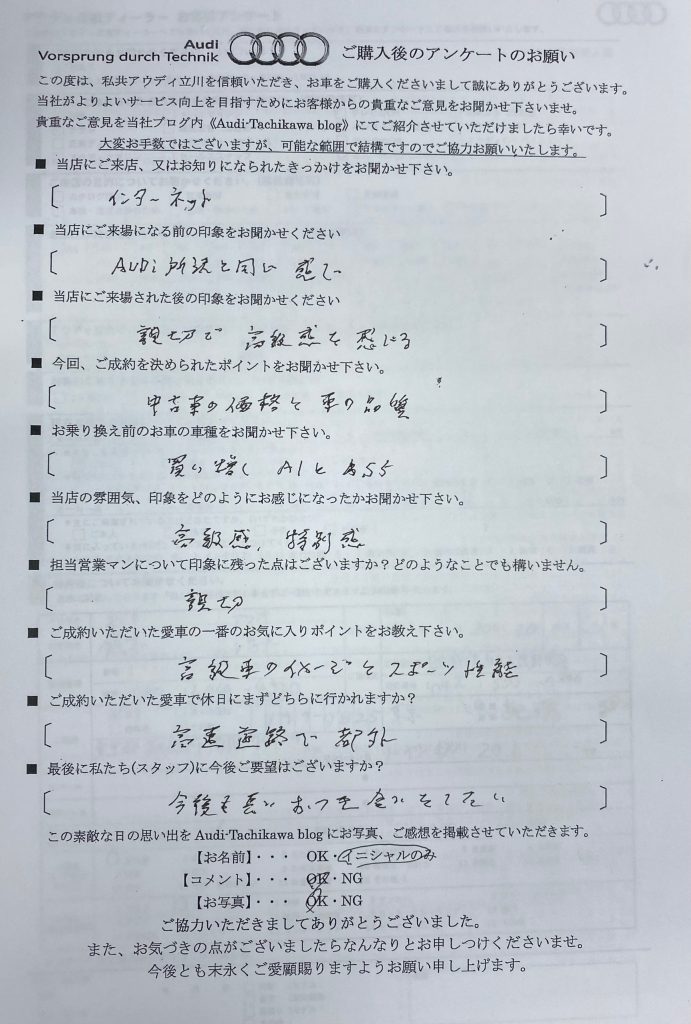 Audi
Vorsprung durch Technik
ご購入後のアンケートのお願い
この度は、私共アウディ立川を信頼いただき、お車をご購入くださいまして誠にありがとうございます。
当社がよりよいサービス向上を目指すためにお客様からの貴重なご意見をお聞かせ下さいませ。
貴重なご意見を当社ブログ内《Audi-Tachikawa blog》にてご紹介させていただけましたら幸いです。
大変お手数ではございますが、可能な範囲で結構ですのでご協力お願いいたします。
■ 当店にご来店、又はお知りになられたきっかけをお聞かせ下さい。
〔 インターネット 〕
■ 当店にご来場になる前の印象をお聞かせください
〔 AUDi 所沢と同じ 感じ 〕
■ 当店にご来場された後の印象をお聞かせください
〔 親切で 高級感を感じる 〕
■ 今回、ご成約を決められたポイントをお聞かせ下さい。
〔 中古車の価格と車の品質 〕
■ お乗り換え前のお車の車種をお聞かせ下さい。
〔 買い増し A1と 〕
■ 当店の雰囲気、印象をどのようにお感じになったかお聞かせ下さい。
〔 高級感、特別感 〕
■ 担当営業マンについて印象に残った点はございますか？どのようなことでも構いません。
〔 親切 〕
■ ご成約いただいた愛車の一番のお気に入りポイントをお教え下さい。
〔 高級車のイメージとスポーツ性能 〕
■ ご成約いただいた愛車で休日にまずどちらに行かれますか？
〔 高速道路で 都外 〕
■ 最後に私たち(スタッフ)に今後ご要望はございますか？
〔 今後も長いおつき合いを 〕
この素敵な日の思い出を Audi-Tachikawa blog にお写真、ご感想を掲載させていただきます。
【お名前】・・・ OK・イニシャルのみ
【コメント】・・・ OK・NG
【お写真】・・・ OK・NG
ご協力いただきましてありがとうございました。
また、お気づきの点がございましたらなんなりとお申しつけくださいませ。
今後とも末永くご愛顧賜りますようお願い申し上げます。